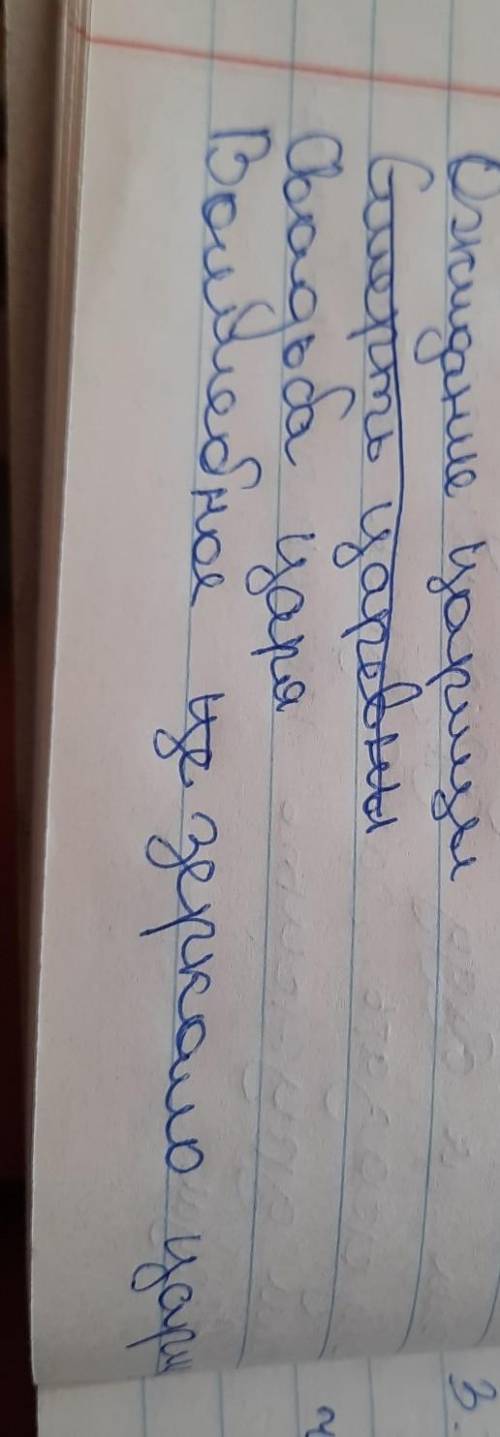 Ожидание царицы
Смерть царевны
Свадьба царя
Волшебное це зеркало цари
3.